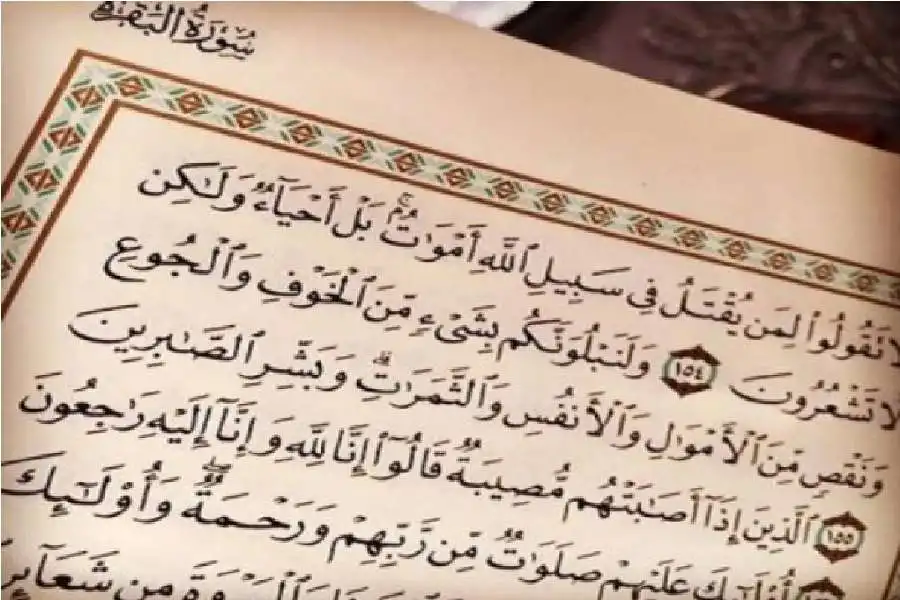 سُورَةُ البَقَرَةِ
لَا تَقُولُوا۟ لِمَن يُقْتَلُ فِى سَبِيلِ ٱللَّهِ أَمْوَٰتٌۢ ۚ بَلْ أَحْيَآءٌ وَلَـٰكِن
لَّا تَشْعُرُونَ ١٥٤ وَلَنَبْلُوَنَّكُم بِشَىْءٍ مِّنَ ٱلْخَوْفِ وَٱلْجُوعِ
وَنَقْصٍ مِّنَ ٱلْأَمْوَٰلِ وَٱلْأَنفُسِ وَٱلثَّمَرَٰتِ ۗ وَبَشِّرِ ٱلصَّـٰبِرِينَ
١٥٥ ٱلَّذِينَ إِذَآ أَصَـٰبَتْهُم مُّصِيبَةٌ قَالُوٓا۟ إِنَّا لِلَّهِ وَإِنَّآ إِلَيْهِ رَٰجِعُونَ
أُو۟لَـٰٓئِكَ عَلَيْهِمْ صَلَوَٰتٌ مِّن رَّبِّهِمْ وَرَحْمَةٌ ۖ وَأُو۟لَـٰٓئِكَ
وَٱلْمَرْوَةَ مِن شَعَآئِرِ